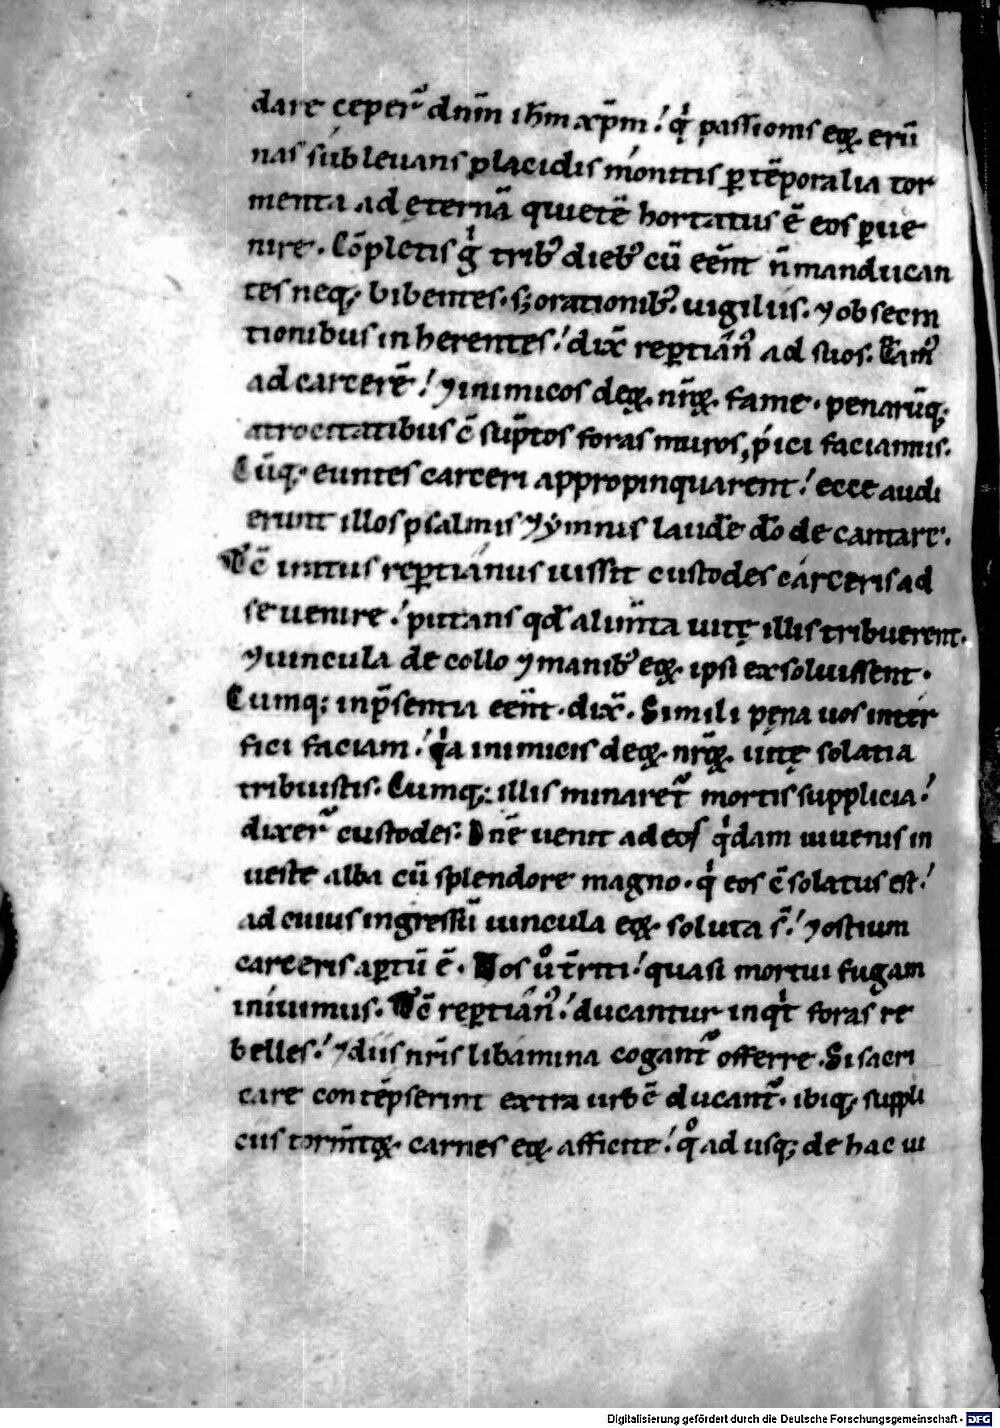 dare ceper᷑ dnm̄ ihm̄ xp̄m! qͥ passionis eoꝝ erū
nas subleuans placidis monitis ꝑ tēporalia tor
menta ad eternā quietē hortatus ē eos ꝑue
nire. Cōpletis gͥ tribꝰ diebꝰ cū eēnt n̄ manducan
tes neq; bibentes. s; orationibꝰ. uigiliis. ⁊ obsecra
tionibus inherentes! dix̄ reꝑtianꝰ ad suos. Eamꝰ
ad carcerē! ⁊ inimicos deoꝝ. nr̄oꝝ. fame. penarūq;
atrocitatibus c̄ sūptos foras muros, p̄ici faciamus.
Cūq; euntes carceri appropinquarent! ecce audi
erunt illos psalmis ⁊ ymnis laudē dō decantare.
Tc̄ iratus reꝑtianus iussit custodes carceris ad
se uenire! putans qd̄ alim̄ta uitę illis tribuerent.
⁊ uincula de collo ⁊ manibꝰ eoꝝ. ipsi exsoluissent.
Cumq; inp̄sentia eēnt. dix̄. Simili pęna uos inter
fici faciam! qͥa inimicis deoꝝ. nr̄oꝝ. uitę solatia
tribuistis. Cumq; illis minaret᷑ mortis supplicia!
dixer᷑ custodes. Dn̄e uenit ad eos qͥdam iuuenis in
ueste alba cū splendore magno. qͥ eos c̄solatus est!
ad cuius ingressū uincula eoꝝ. soluta s̄! ⁊ ostium
carceris aꝑtū ē. Nos uͦ t̄rriti! quasi mortui fugam
iniuimus. Tc̄ reꝑtianꝰ! ducantur inqͥt foras re
belles! ⁊ diis nr̄is libamina cogant᷑ offerre. Si sacri
care contēpserint extra urbē ducant᷑. ibiq; suppli
ciis torm̄toꝝ. carnes eoꝝ. afficite! qͦ ad usq; de hac ui